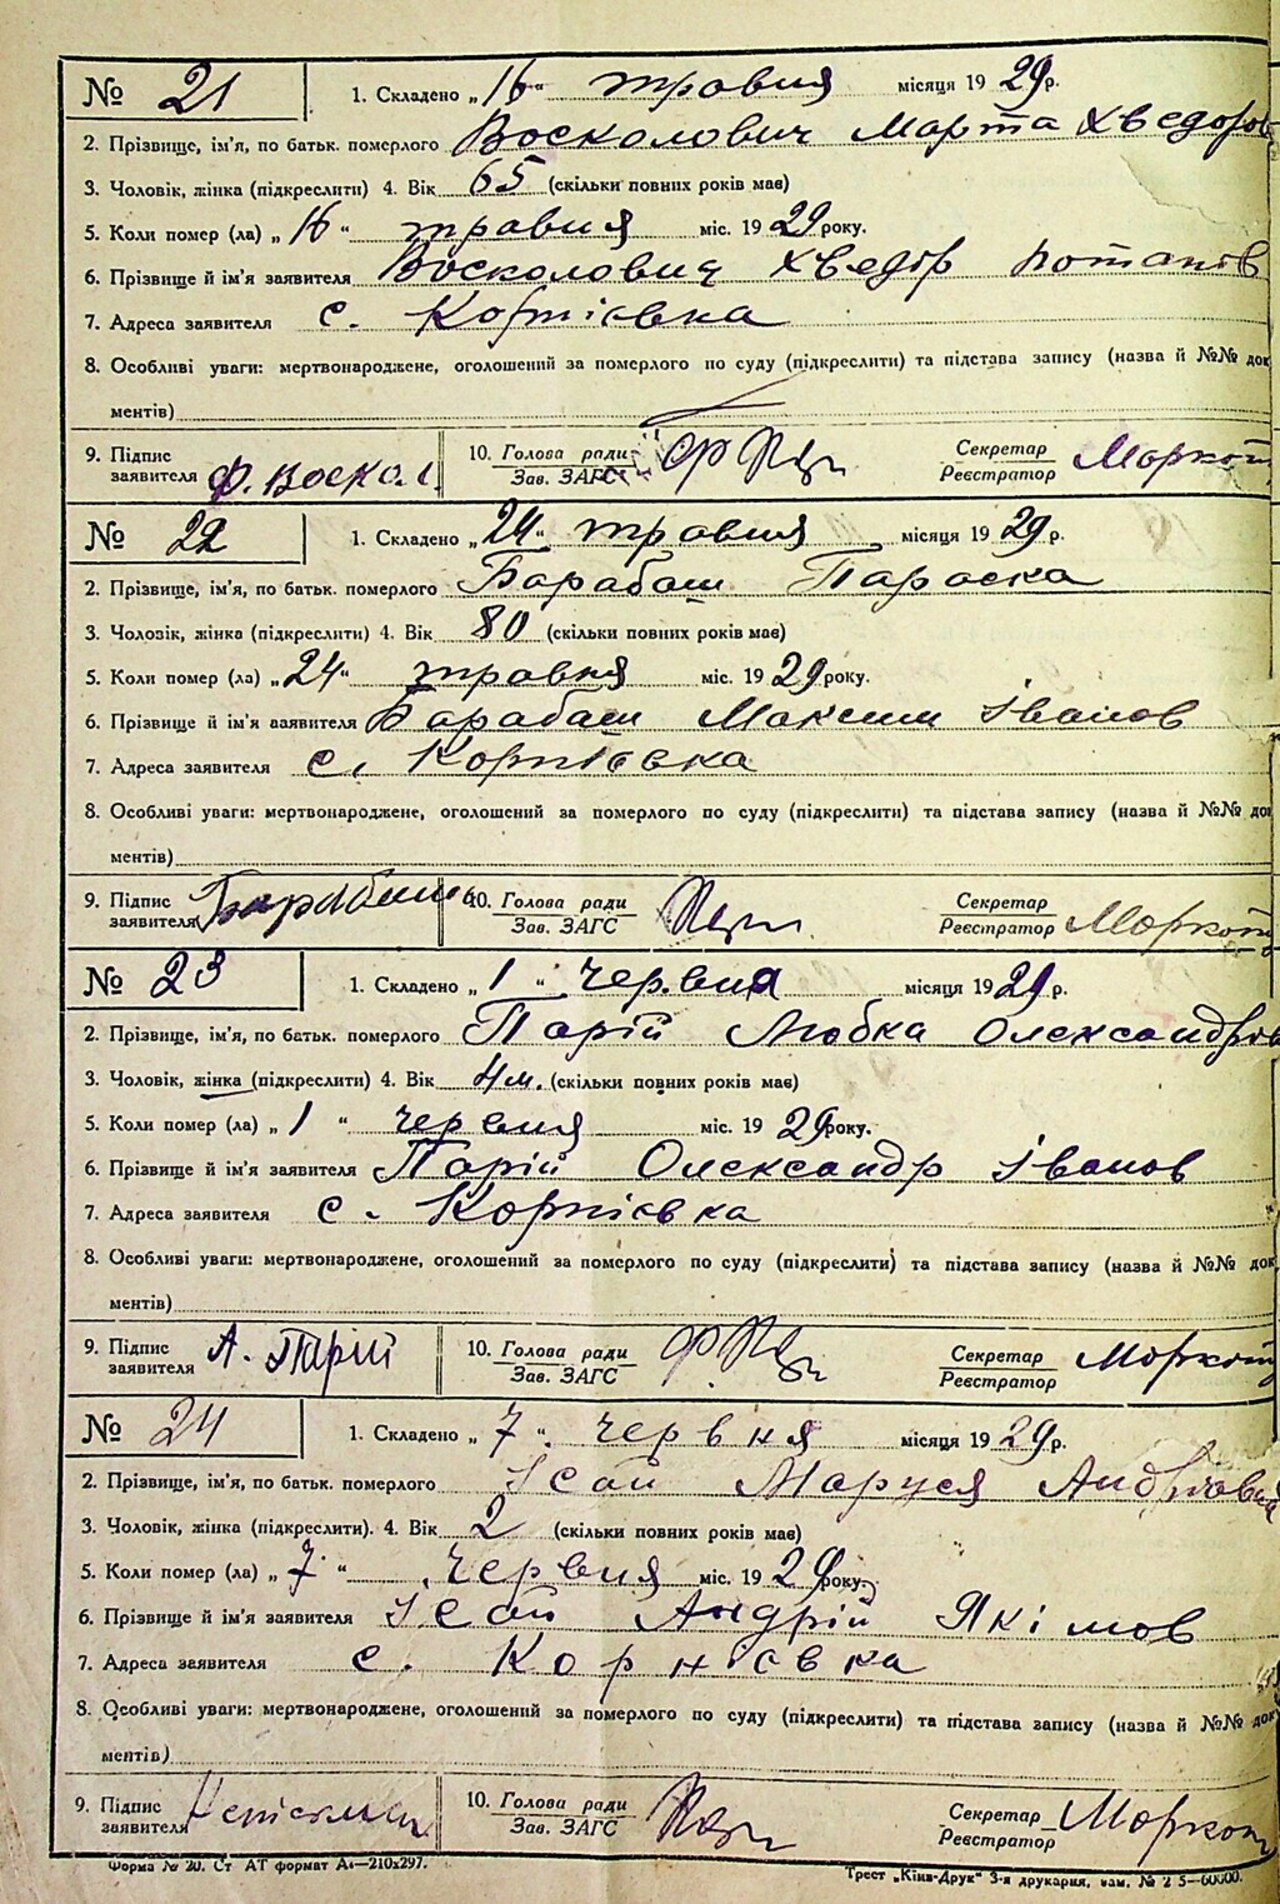 № 21 1. Складено „16“ травня місяця 1929р.
2. Прізвище, ім'я, по батьк. померлого Восколович Марта Хведоров
3. Чоловік, жінка (підкреслити) 4. Вік 65 (скільки повних років має)
5. Коли помер (ла) „16“ травня міс. 1929 року.
6. Прізвище й ім'я заявителя Восколович Хведір Потапів
7. Адреса заявителя с. Корнієвка
8. Особливі уваги: мертвонароджене, оголошений за померлого по суду (підкреслити) та підстава запису (назва й №№ док
ментів)
9. Підпис заявителя Ф. Воскол. 10. Голова ради Зав. ЗАГС Секретар Реєстратор Маркот
№ 22 1. Складено „24“ травня місяця 1929р.
2. Прізвище, ім'я, по батьк. померлого Барабаш Параска
3. Чоловік, жінка (підкреслити) 4. Вік 80 (скільки повних років має)
5. Коли помер (ла) „24“ травня міс. 1929 року.
6. Прізвище й ім'я заявителя Барабаш Максим Іванов
7. Адреса заявителя с. Корнієвка
8. Особливі уваги: мертвонароджене, оголошений за померлого по суду (підкреслити) та підстава запису (назва й №№ док
ментів)
9. Підпис заявителя Барабаш 10. Голова ради Зав. ЗАГС Секретар Реєстратор Маркот
№ 23 1. Складено „1“ червня місяця 1929 р.
2. Прізвище, ім'я, по батьк. померлого Парій Любка Олександров
3. Чоловік, жінка (підкреслити) 4. Вік 4 м. (скільки повних років має)
5. Коли помер (ла) „1“ червня міс. 1929 року.
6. Прізвище й ім'я заявителя Парій Олександр Іванов
7. Адреса заявителя с. Корнієвка
8. Особливі уваги: мертвонароджене, оголошений за померлого по суду (підкреслити) та підстава запису (назва й №№ док
ментів)
9. Підпис заявителя А. Парій 10. Голова ради Зав. ЗАГС Секретар Реєстратор Маркот
№ 24 1. Складено „7“ червня місяця 1929р.
2. Прізвище, ім'я, по батьк. померлого Ісай Маруся Андрієвна
3. Чоловік, жінка (підкреслити). 4. Вік 2 (скільки повних років має)
5. Коли помер (ла) „7“ червня міс. 1929 року.
6. Прізвище й ім'я заявителя Ісай Андрій Якімов
7. Адреса заявителя с. Корнієвка
8. Особливі уваги: мертвонароджене, оголошений за померлого по суду (підкреслити) та підстава запису (назва й №№ док
ментів)
9. Підпис заявителя 10. Голова ради Зав. ЗАГС Секретар Реєстратор Маркот
Форма № 20. Ст АТ формат А4—210х297. Трест „Київ-Друк“ 3-я друкарня, зам. № 2 5—60000.